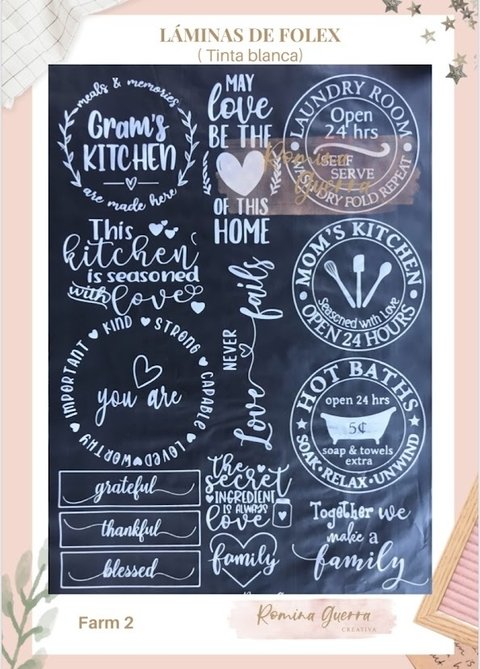 LÁMINAS DE FOLEX
( Tinta blanca)
meals & memories
Gram's
KITCHEN
are made here
MAY
love
BE THE
OF THIS
HOME
LAUNDRY ROOM
Open
24 hrs
SELF
SERVE
WASH DRY FOLD REPEAT
Romina
Guerra
This
kitchen
is seasoned
with love
MOM'S KITCHEN
Seasoned with Love
OPEN 24 HOURS
IMPORTANT ♥ KIND ♥ STRONG ♥ CAPABLE ♥ LOVED ♥ WORTHY ♥
you are
Love NEVER fails
HOT BATHS
open 24 hrs
5¢
soap & towels
extra
SOAK • RELAX • UNWIND
grateful
thankful
blessed
the
secret
INGREDIENT
IS ALWAYS
love
family
Together we
make a
family
Farm 2
Romina Guerra
CREATIVA